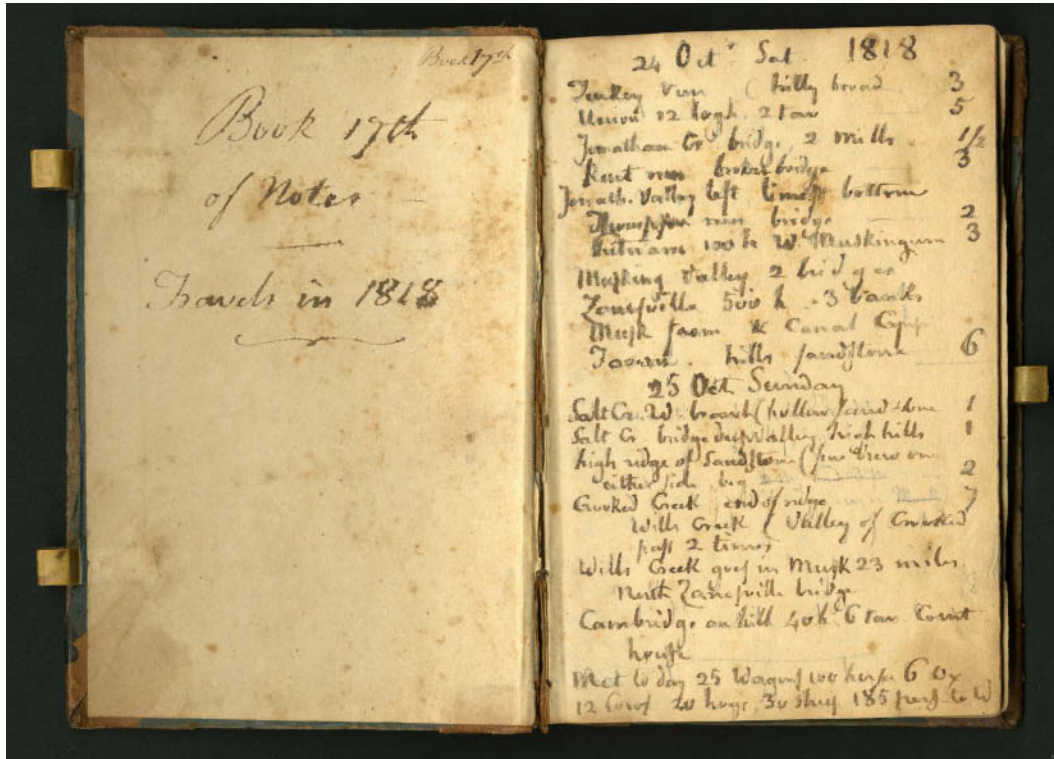 Book 17th
Book 17th
of Notes
Travels in 1818
24 Oct. Sat. 1818
Turkey run ( hilly broad 3
Union 12 logh. 2 tav 5
Jonathan Cr bridge, 2 mills 1/2
Kent run broken bridge 3
Jonath. Valley left limest bottom
run bridge 2
Putnam 100 h W. Muskingum 3
Musking Valley 2 bridges
Zanesville 500 h. 3 banks
Musk foam & Canal
Tavern. hills sandstone 6
25 Oct. Sunday
Salt Cr. W. branch (hollow sandstone 1
Salt Cr. bridge deep valley, high hills 1
high ridge of Sandstone (fine view on
either side, beg 2
Crooked Creek end of ridge 7
Wills Creek (Valley of Crooked
pass 2 times
Wills Creek goes in Musk 23 miles
North Zanesville bridge
Cambridge on hill 40 h. 6 tav Court
house
Met to day 25 Wagons 100 horses 6 Ox
12 Cows 20 hogs, 30 sheep 185 pers to W